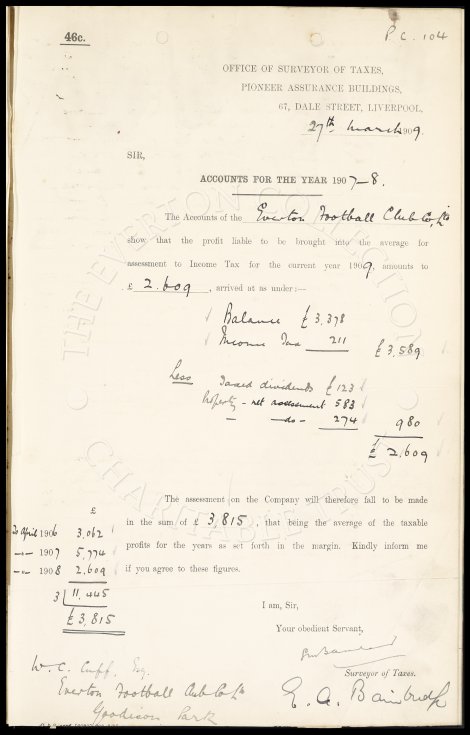 46c.
P.C. 104
OFFICE OF SURVEYOR OF TAXES,
PIONEER ASSURANCE BUILDINGS,
67, DALE STREET, LIVERPOOL,
27th March 1909
SIR,
ACCOUNTS FOR THE YEAR 1907–8.
The Accounts of the Everton Football Club Co, Ld
show that the profit liable to be brought into the average for
assessment to Income Tax for the current year 1909, amounts to
£ 2.609, arrived at as under:—
Balance £ 3,378
Income Tax 211 £ 3,589
Less Taxed dividends £ 123
Property – net assessment 583
– – do – 274 980
£ 2,609
The assessment on the Company will therefore fall to be made
in the sum of £ 3,815, that being the average of the taxable
profits for the years as set forth in the margin. Kindly inform me
if you agree to these figures.
£
To April 1906 3,062
– – 1907 5,774
– – 1908 2,609
3 11,445
£3,815
I am, Sir,
Your obedient Servant,
Surveyor of Taxes.
E. A. Bainbridge
W. C. Cuff, Esq.
Everton Football Club Co Ld
Goodison Park
THE EVERTON COLLECTION
CHARITABLE TRUST